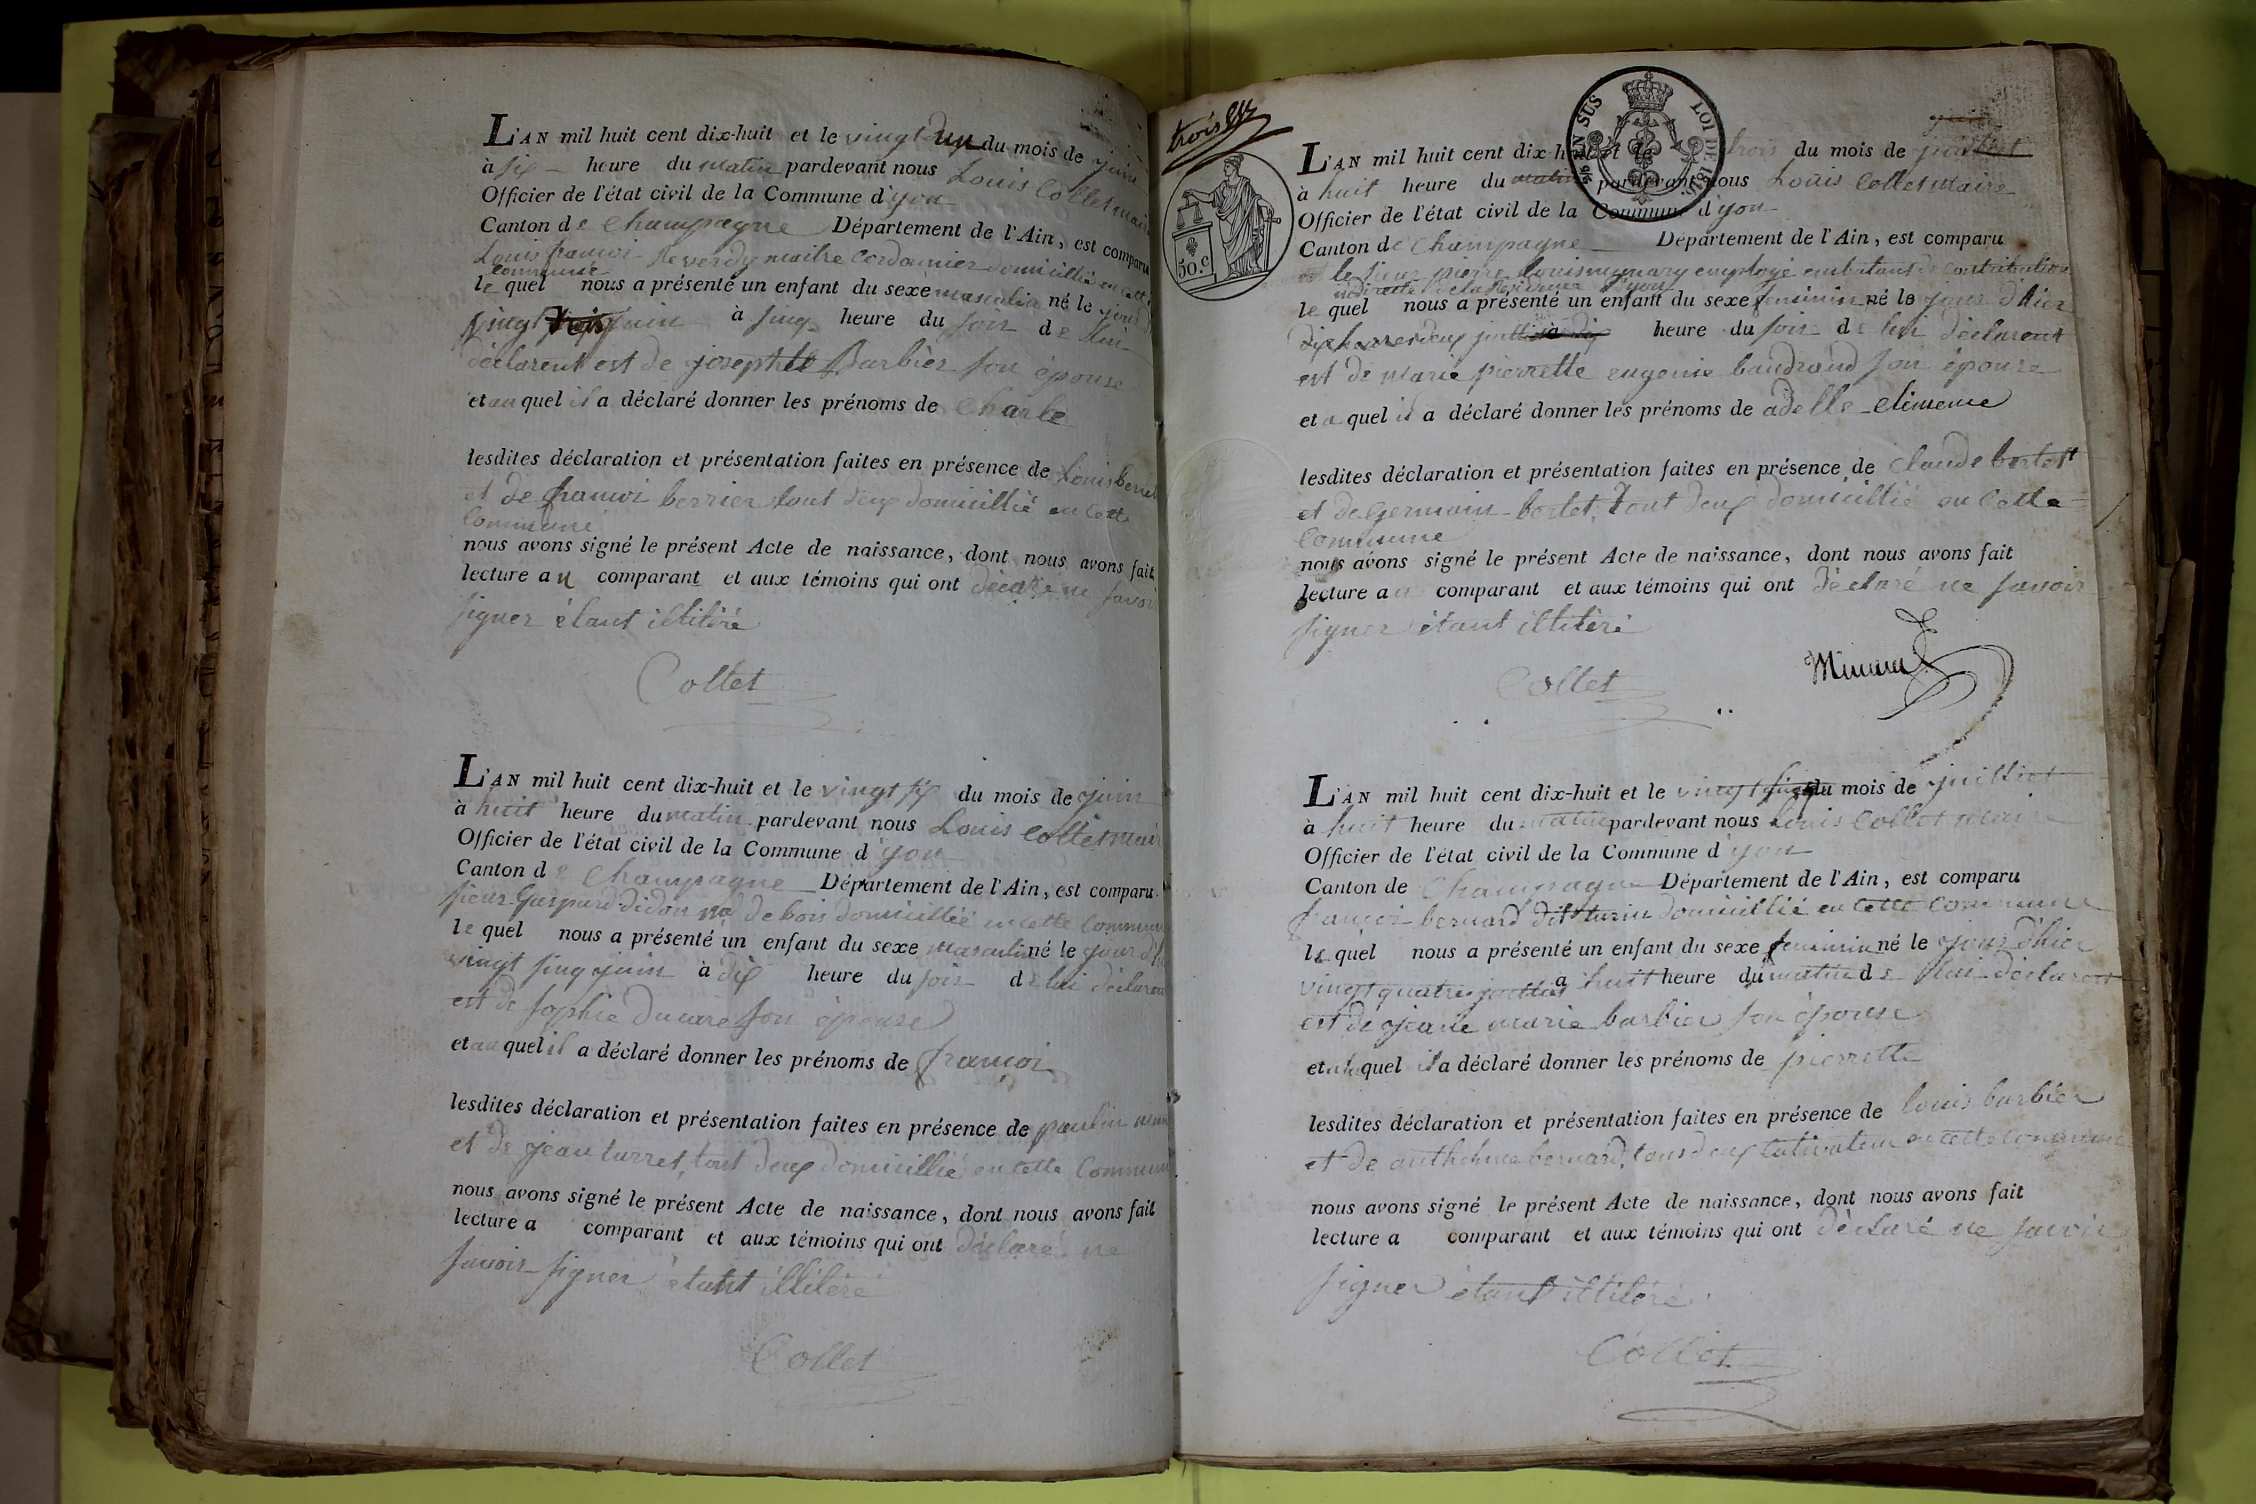 L'AN mil huit cent dix-huit et le vingt un du mois de juin
à six heure du matin pardevant nous Louis Collet maire
Officier de l'état civil de la Commune d'yon
Canton de Champagne Département de l'Ain, est comparu
Louis françoi Reverdy maitre Cordonnier domicillié en cette
commune
le quel nous a présenté un enfant du sexe masculin né le jour
vingt juin à sinq heure du soir de lui
déclarent est de josephte Barbier son épouse
et au quel il a déclaré donner les prénoms de Charle
lesdites déclaration et présentation faites en présence de Louis
et de françoi berrier tout deux domicillié en cette
Commune
nous avons signé le présent Acte de naissance, dont nous avons fait
lecture au comparant et aux témoins qui ont déclaré ne savoir
signer étant illitéré
Collet
L'AN mil huit cent dix-huit et le vingt six du mois de juin
à huit heure du matin pardevant nous Louis Collet maire
Officier de l'état civil de la Commune d'yon
Canton de Champagne Département de l'Ain, est comparu
sieur Gaspard didon md de bois domicillié en cette Commune
le quel nous a présenté un enfant du sexe masculin né le jour d'hier
vingt sinq juin à dix heure du soir de lui déclarent
est de sophie Ducaré son épouse
et au quel il a déclaré donner les prénoms de françoi
lesdites déclaration et présentation faites en présence de paulin
et de jean turret, tout deux domicillié en cette Commune
nous avons signé le présent Acte de naissance, dont nous avons fait
lecture a comparant et aux témoins qui ont déclaré ne
savoir signer étant illitéré
Collet
trois
50.c
EN SUS LOI DE 1816
L'AN mil huit cent dix-huit et le trois du mois de juillet
à huit heure du matin pardevant nous Louis Collet maire
Officier de l'état civil de la Commune d'yon
Canton de Champagne Département de l'Ain, est comparu
le sieur pierre Louis employé contribution
indirecte de la Résidence d'yon
le quel nous a présenté un enfant du sexe feminin né le jour d'hier
heure du soir de lui déclarent
est de marie pierrette eugenie baudrand son épouse
et a quel il a déclaré donner les prénoms de adelle climence
lesdites déclaration et présentation faites en présence de Claude bertet
et de Germain bertet, tout deux domicillié en Cette
Commune
nous avons signé le présent Acte de naissance, dont nous avons fait
lecture au comparant et aux témoins qui ont déclaré ne savoir
signer étant illitéré
Collet
L'AN mil huit cent dix-huit et le vingt sinq du mois de juilliet
à huit heure du matin pardevant nous Louis Collet maire
Officier de l'état civil de la Commune d'yon
Canton de Champagne Département de l'Ain, est comparu
françoi bernard dit turin domicillié en cette commune
le quel nous a présenté un enfant du sexe feminin né le jour d'hier
vingt quatre juilliet a huit heure du matin de lui déclarent
est de jeane marie barbier son épouse
et quel il a déclaré donner les prénoms de pierrette
lesdites déclaration et présentation faites en présence de louis barbier
et de anthelme bernard, tous deux cultivateur en cette Commune
nous avons signé le présent Acte de naissance, dont nous avons fait
lecture a comparant et aux témoins qui ont déclaré ne savoir
signer étant illitéré
Collet